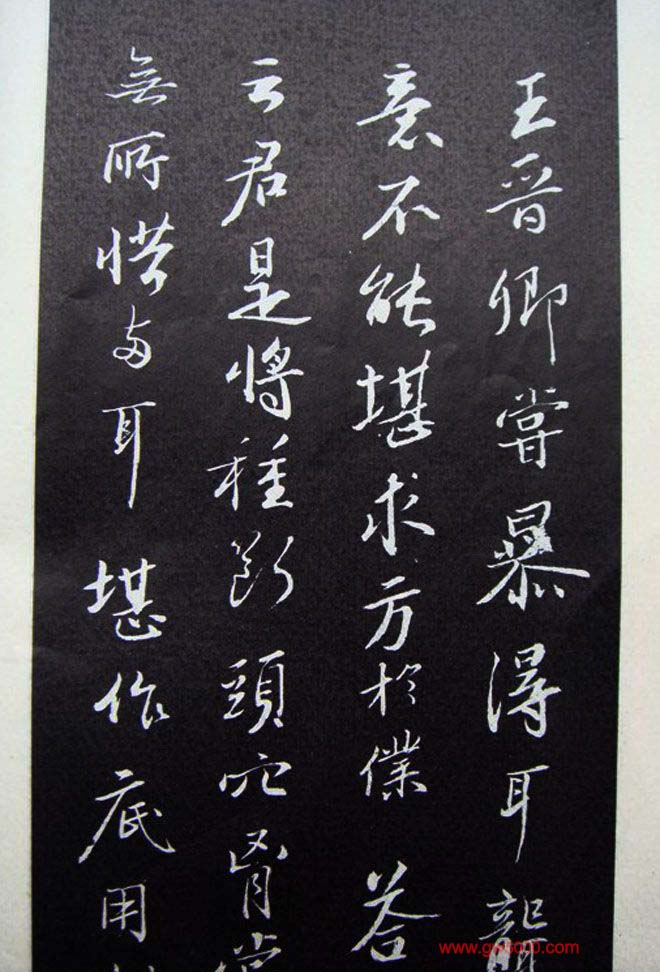 王晉卿嘗暴得耳聾
意不能堪求方於僕荅
云君是將種斷頭穴胷當
無所惜兩耳堪作底用
www.gw5000.com